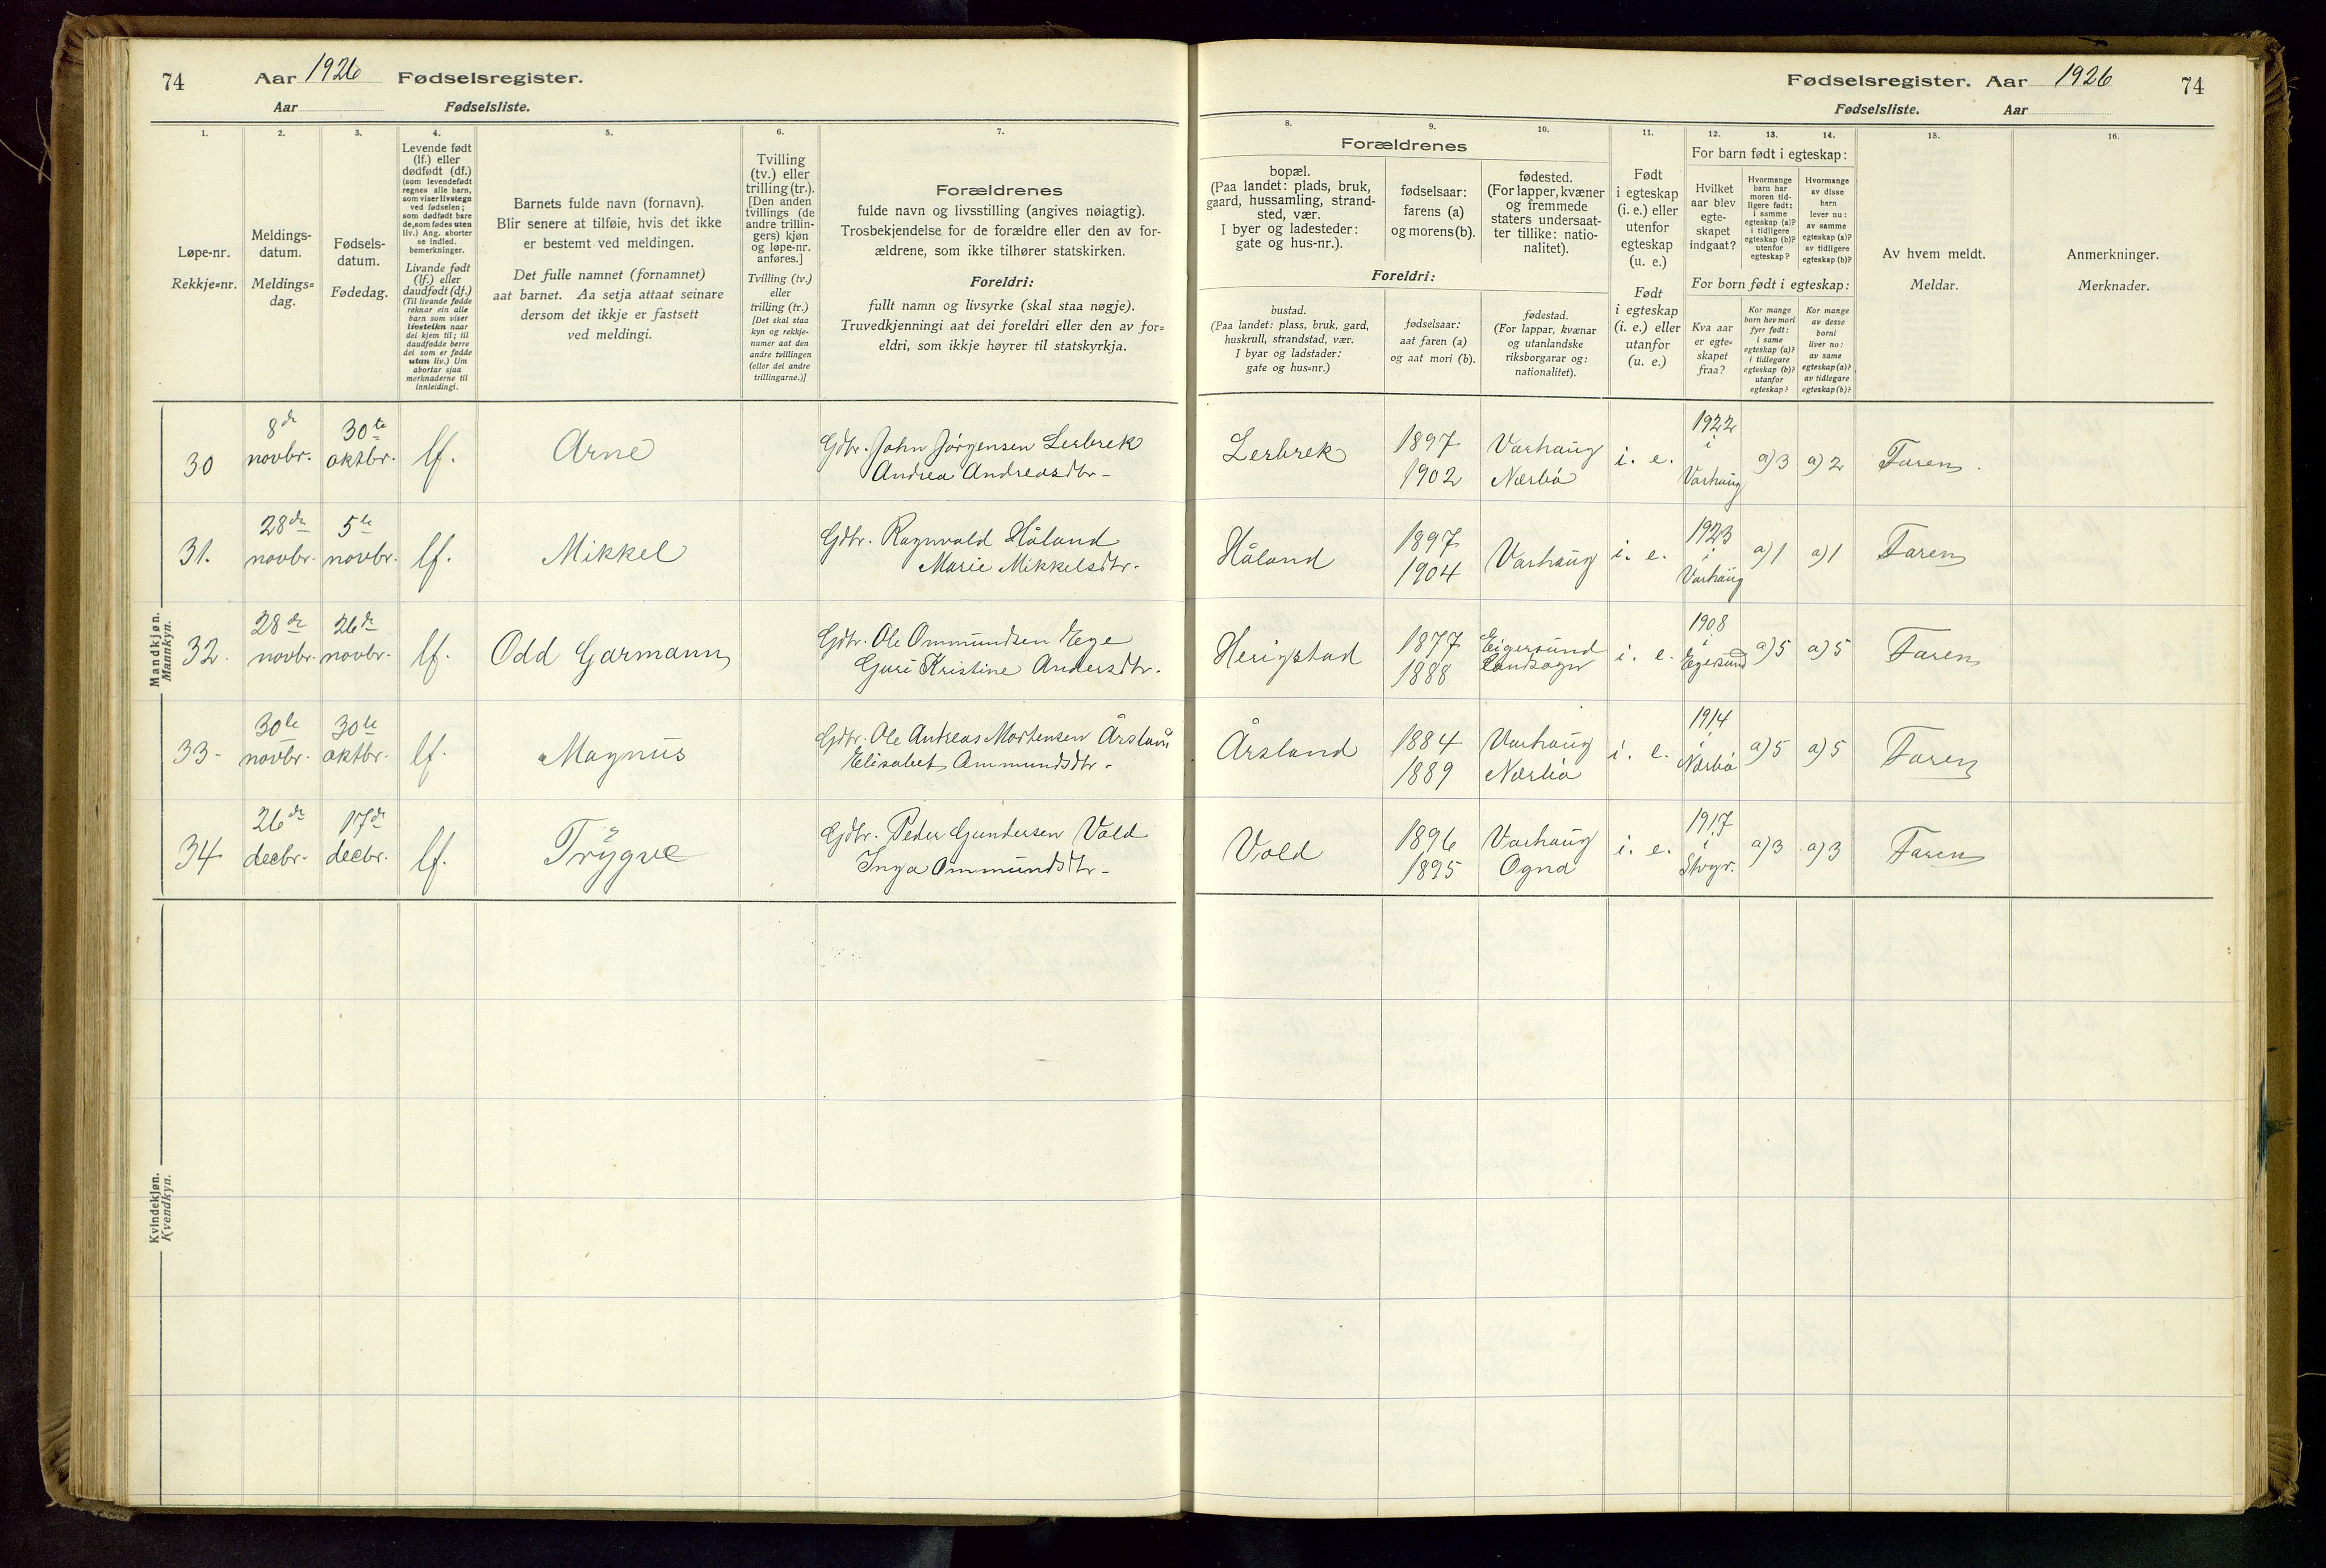 74 Aar 1926 Fødselsregister.
Aar Fødselsliste.
1. 2. 3. 4. 5. 6. 7.
Løpe-nr.
Rekkje=nr.
Meldings-
datum.
Meldings=
dag.
Fødsels-
datum.
Fødedag.
Levende født
(lf.) eller
dødfødt (df.)
(som levendefødt
regnes alle barn,
som viser livstegn
ved fødselen;
som dødfødt bare
de, som fødes uten
liv.) Ang. aborter
se indled.
bemerkninger.
Livande født
(lf.) eller
daudfødt (df.)
(Til livande fødde
reknar ein alle
barn som viser
livsteikn naar
dei kjem til; til
daudfødde berre
dei som er fødde
utan liv.) Um
abortar sjaa
merknaderne til
innleidingi.
Barnets fulde navn (fornavn).
Blir senere at tilføie, hvis det ikke
er bestemt ved meldingen.
Det fulle namnet (fornamnet)
aat barnet. Aa setja attaat seinare
dersom det ikkje er fastsett
ved meldingi.
Tvilling
(tv.) eller
trilling (tr.).
[Den anden
tvillings (de
andre trillin-
gers) kjøn
og løpe-nr.
anføres.]
Tvilling (tv.)
eller
trilling (tr.)
[Det skal staa
kyn og rekkje-
numer aat den
andre tvillingen
(eller dei andre
trillingarne.)]
Forældrenes
fulde navn og livsstilling (angives nøiagtig).
Trosbekjendelse for de forældre eller den av for-
ældrene, som ikke tilhører statskirken.
Foreldri:
fullt namn og livsyrke (skal staa nøgje).
Truvedkjenningi aat dei foreldri eller den av for=
eldri, som ikkje høyrer til statskyrkja.
Mandkjøn.
Mannkyn.
30 8de novbr. 30te oktbr. lf. Arne
Gdbr. John Jørgensen Lerbrek
Andrea Andreasdtr.
31. 28de novbr. 5te novbr. lf. Mikkel
Gdbr. Ragnvald Håland
Marie Mikkelsdtr.
32. 28de novbr. 26de novbr. lf. Odd Garmann
Gdbr. Ole Ommundsen Ege
Guri Kristine Andersdtr.
33 30te novbr. 30te oktbr. lf. Magnus
Gdbr. Ole Andreas Mortensen Årsland
Elisabet Ammundsdtr.
34 26de decbr. 17de decbr. lf. Trygve
Gdbr. Peder Gundersen Vold
Inga Ommundsdtr.
Kvindekjøn.
Kvendkyn.
Fødselsregister. Aar 1926 74
Fødselsliste. Aar
8. 9. 10. 11. 12. 13. 14. 15. 16.
Forældrenes
bopæl.
(Paa landet: plads, bruk,
gaard, hussamling, strand-
sted, vær.
I byer og ladesteder:
gate og hus-nr.).
fødselsaar:
farens (a)
og morens (b).
fødested.
(For lapper, kvæner
og fremmede
staters undersaat-
ter tillike: natio-
nalitet).
Foreldri:
bustad.
(Paa landet: plass, bruk, gard,
huskrull, strandstad, vær.
I byar og ladstader:
gate og hus=nr.)
fødselsaar:
aat faren (a)
og aat mori (b).
fødestad.
(For lappar, kvænar
og utanlandske
riksborgarar og:
nationalitet).
Født
i egteskap
(i. e.) eller
utenfor
egteskap
(u. e.)
Født
i egteskap
(i. e.) eller
utanfor
(u. e.)
For barn født i egteskap:
Hvilket
aar blev
egte-
skapet
indgaat?
Hvormange
barn har
moren tid-
ligere født:
i samme
egteskap (a)?
i tidligere
egteskap (b)?
utenfor
egteskap?
Hvormange
av disse
barn
lever nu:
av samme
egteskap (a)?
av tidligere
egteskap (b)?
For born født i egteskap:
Kva aar
er egte=
skapet
fraa?
Kor mange
born hev mori
fyrr født:
i same
egteskap (a)?
i tidlegare
egteskap (b)?
utanfor
egteskap?
Kor mange
av desse
borni
liver no:
av same
egteskap (a)?
av tidlegare
egteskap (b)?
Av hvem meldt.
Meldar.
Anmerkninger.
Merknader.
Lerbrek 1897 1902 Varhaug Nærbø i. e. 1922 i Varhaug a) 3 a) 2 Faren.
Håland 1897 1904 Varhaug i. e. 1923 i Varhaug a) 1 a) 1 Faren
Herigstad 1877 1888 Eigersund Landsogn i. e. 1908 i Egersund a) 5 a) 5 Faren
Årsland 1884 1889 Varhaug Nærbø i. e. 1914 i Nærbø a) 5 a) 5 Faren
Vold 1896 1895 Varhaug Ogna i. e. 1917 i Stvgr. a) 3 a) 3 Faren